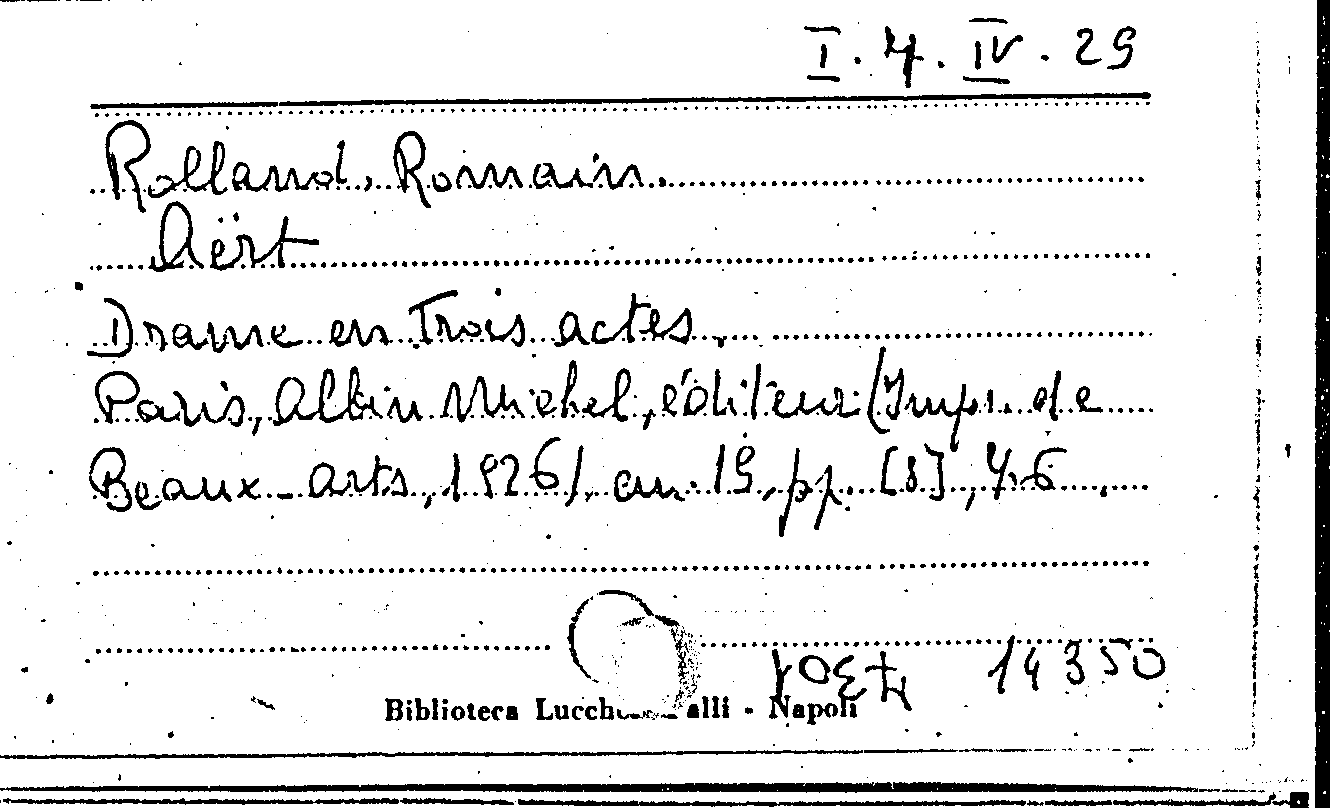 I. 4. IV. 29
Rolland, Romain.
Aërt
Drame en Trois actes.
Paris, Albin Michel, éditeur (Impr. de
Beaux-arts, 1926), cm. 19, pp. [8], 76.
14350
Biblioteca alli - Napoli